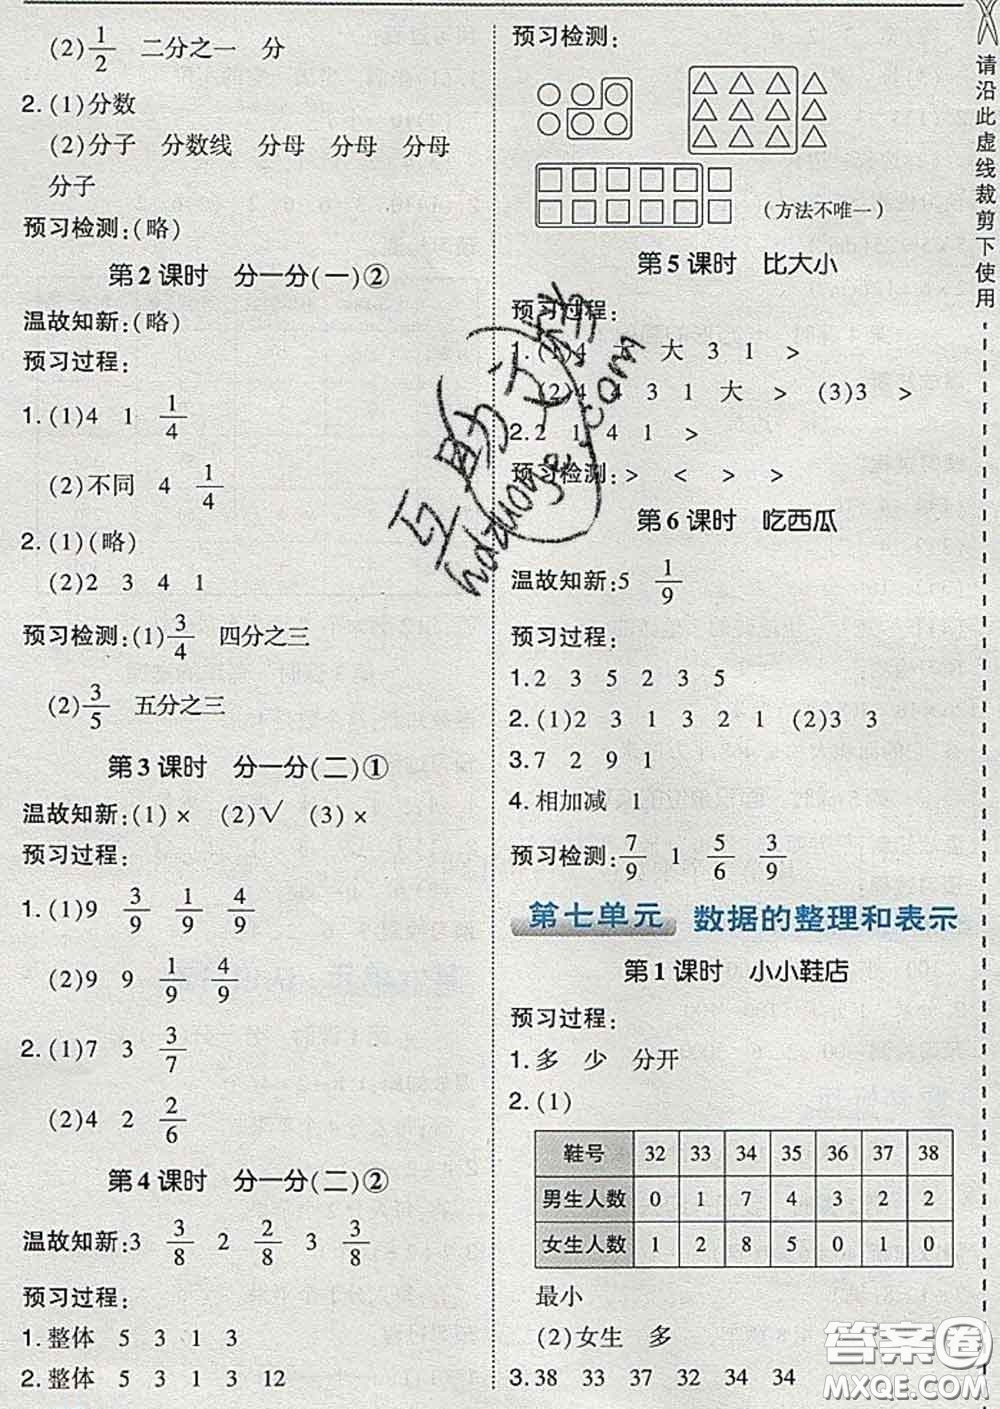 (2)1/2 二分之一 分
2.(1)分数
(2)分子 分数线 分母 分母 分母
分子
预习检测:(略)
第2课时 分一分(一)②
温故知新:(略)
预习过程:
1.(1)4 1 1/4
(2)不同 4 1/4
2.(1)(略)
(2)2 3 4 1
预习检测:(1)3/4 四分之三
(2)3/5 五分之三
第3课时 分一分(二)①
温故知新:(1)× (2)√ (3)×
预习过程:
1.(1)9 3/9 1/9 4/9
(2)9 9 1/9 4/9
2.(1)7 3 3/7
(2)4 2 2/6
第4课时 分一分(二)②
温故知新:3 3/8 2 2/8 3 3/8
预习过程:
1.整体 5 3 1 3
2.整体 5 3 1 3 12
预习检测:
(方法不唯一)
第5课时 比大小
预习过程:
1.(1)4 大 3 1 >
(2)4 4 3 1 大 > (3)3 >
2.2 1 4 1 >
预习检测:> < > >
第6课时 吃西瓜
温故知新:5 1/9
预习过程:
1.2 3 5 2 3 5
2.(1)2 3 1 3 2 1 (2)3 3
3.7 2 9 1
4.相加减 1
预习检测:7/9 1 5/6 3/9
第七单元 数据的整理和表示
第1课时 小小鞋店
预习过程:
1.多 少 分开
2.(1)
鞋号 32 33 34 35 36 37 38
男生人数 0 1 7 4 3 2 2
女生人数 1 2 8 5 0 1 0
最小
(2)女生 多
3.38 33 37 34 34 34
请沿此虚线裁剪下使用
互助文档
hdzuoye.com
答案圈
MXQE.COM